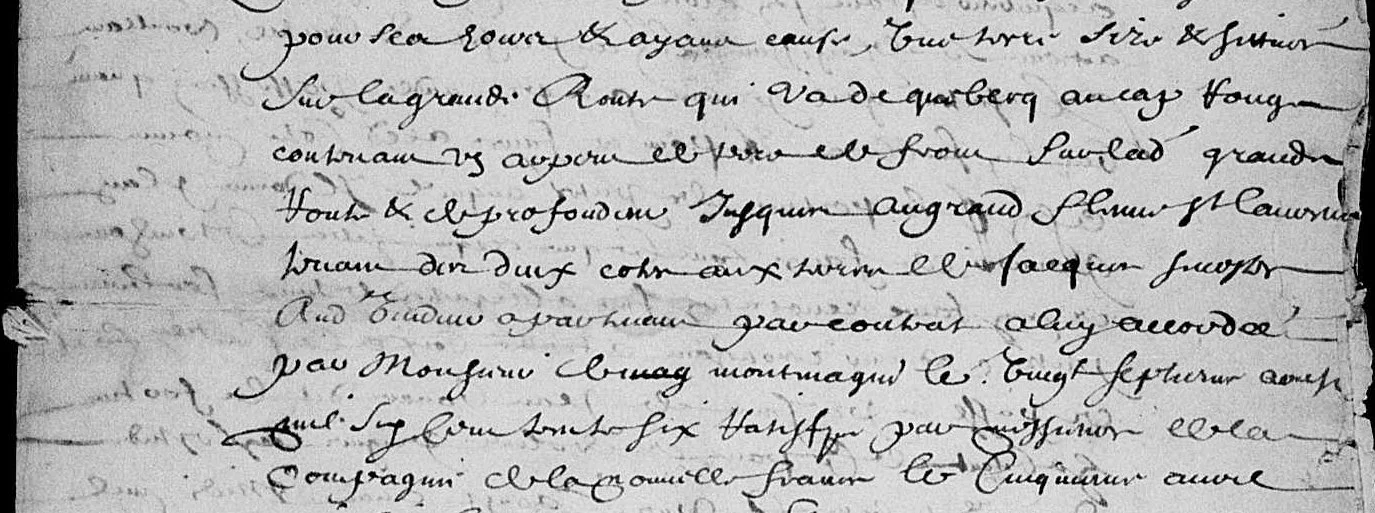 pour ses hoirs & ayans cause, Une terre size & scittuée
Sur la grande Route qui Va de quebecq au cap Rouge
contenant un arpent de terre de front Sur lad grande
Route & de profondeur Jusques au grand fleuve St Laurens
tenant des deux costes aux terres de Jacques
Aud Vendeur apartenant par contrat a luy accordée
par Monsieur de montmagni le Vingt septiesme aoust
mil Six Cens trente six Ratiffié par messieurs de la
Compagnie de la Nouvelle france le Cinquiesme avril